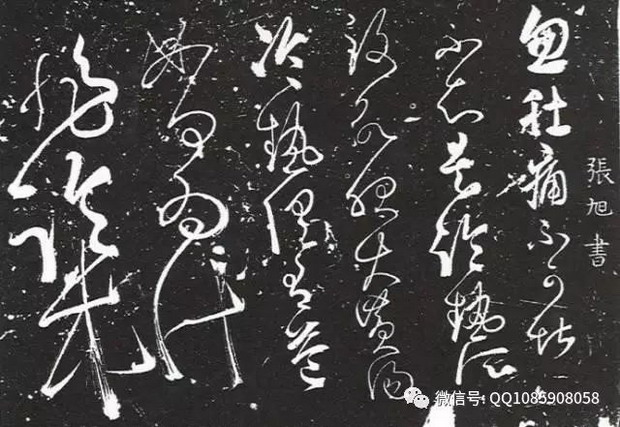 張旭書
忽肚痛不可堪
不知是冷熱所
致欲服大黃湯
冷熱俱有益
如何為計
非臨床
微信号:QQ1085908058